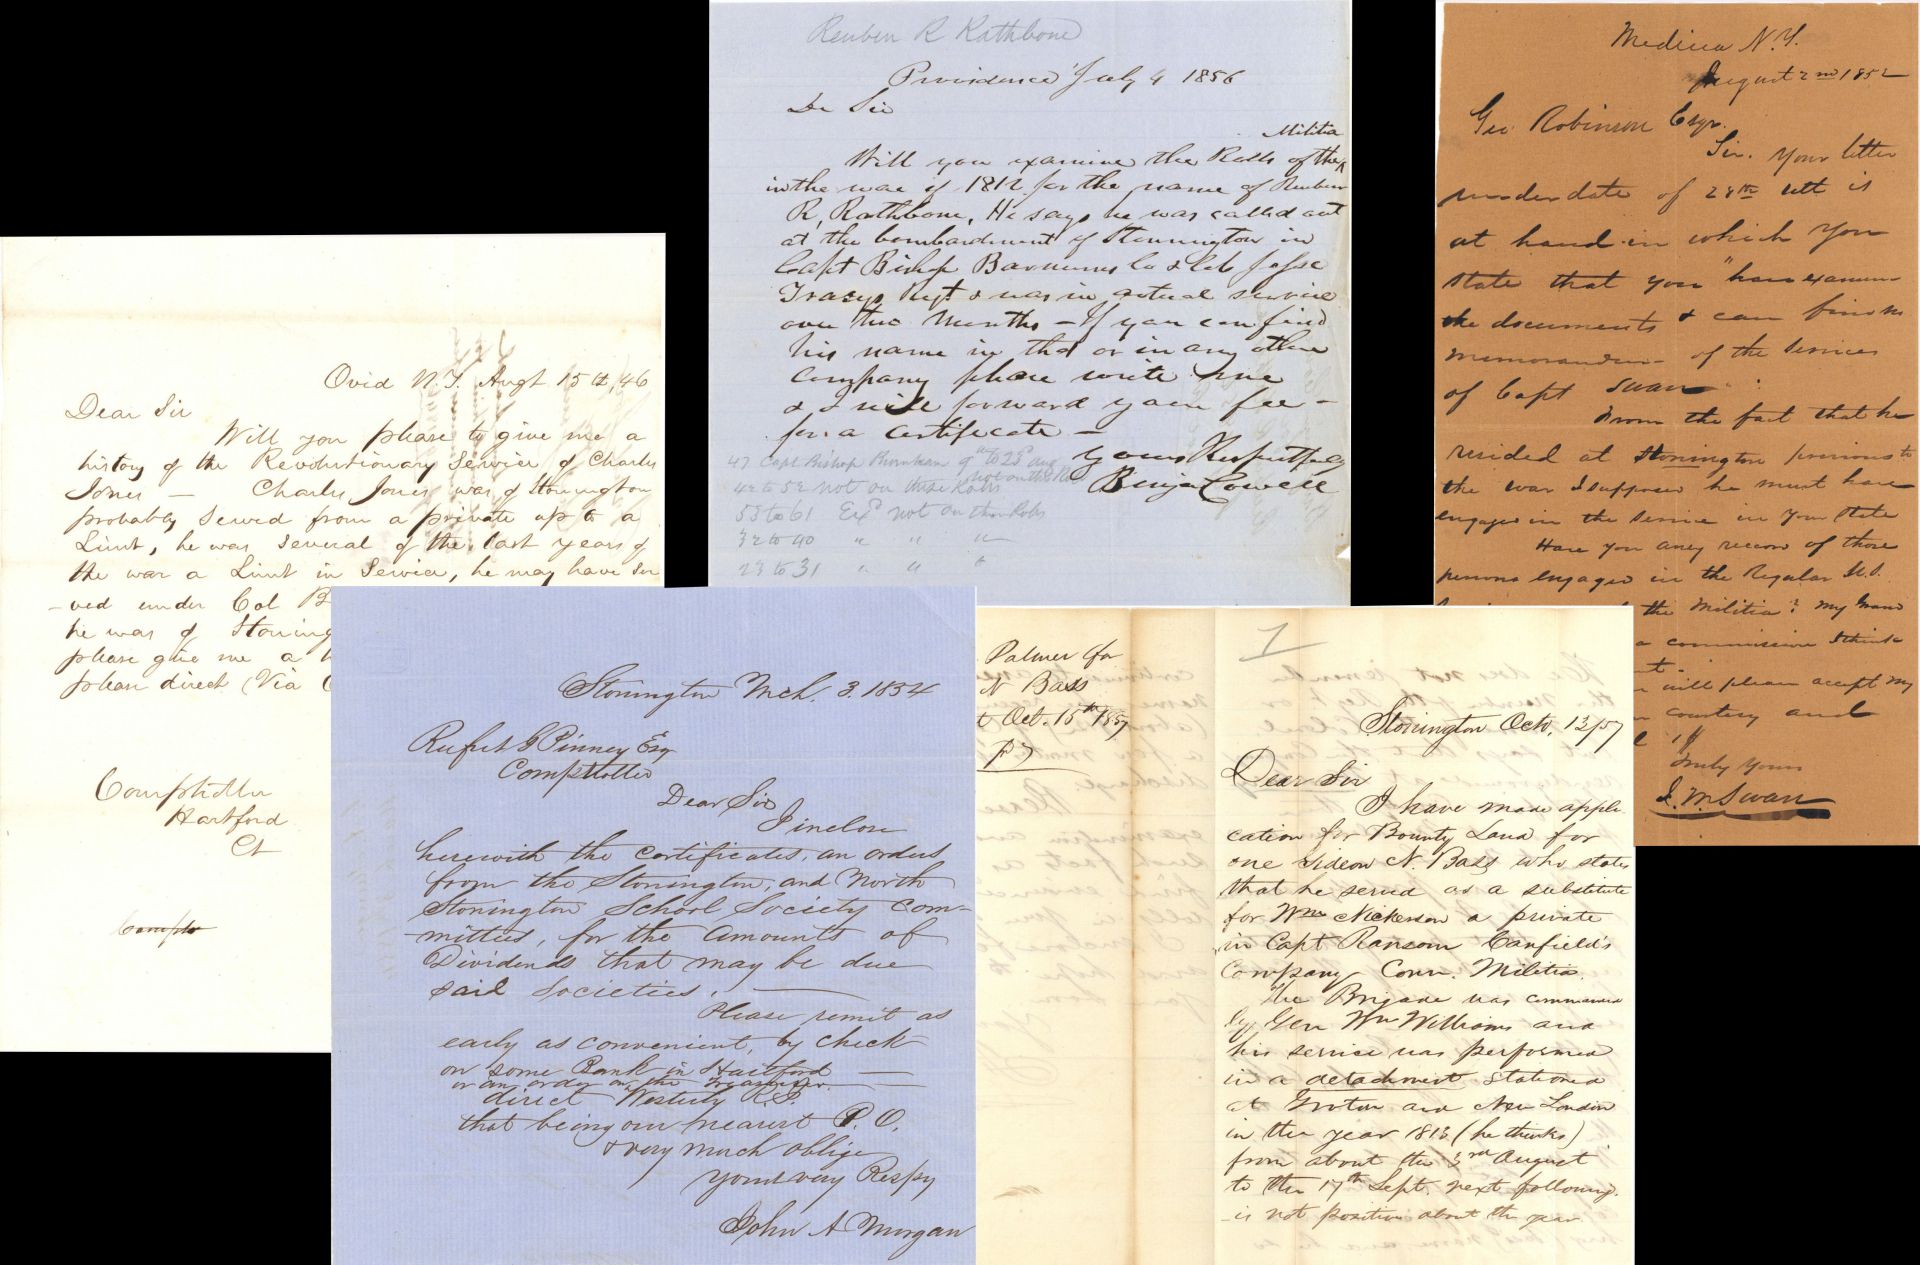 Ovid N.Y. Augt 15th, 46
Dear Sir
Will you please to give me a
history of the Revolutionary Service of Charles
Jones — Charles Jones was of Stonington
probably served from a private up to a
Lieut, he was several of the last years of
the war a Lieut in Service, he may have ser
-ved under Col B
he was of Stoning
please give me a
please direct (Via
Comptroller
Hartford
Ct
Compto
Reuben R Rathbone
Providence July 4 1856
De Sir
Militia
Will you examine the Rolls of the
in the war of 1812 for the name of Reuben
R. Rathbone. He says he was called out
at the bombardment of Stonnington in
Capt Bishop Barnums Co & Col. Jesse
Tracys Regt & was in actual service
over two Months — If you can find
his name in that or in any other
company please write me
& I will forward your fee —
for a certificate —
Yours Respectfully
Benja Cowell
47 Capt Bishop Burnham 9th to 23d aug
not on the Ro
42 to 52 not on these Rolls
53 to 61 Exd not on then Rolls
32 to 40 " " "
23 to 31 " " "
Medina N.Y.
August 2nd 1852
Geo Robinson Esqr.
Sir. Your letter
under date of 28th ult is
at hand in which you
state that you "have examin
the documents & can find no
memorandum of the services
of Capt Swan
From the fact that he
resided at Stonington previous to
the war I suppose he must have
engaged in the service in your State
Have you any record of those
persons engaged in the Regular U.S.
the Militia? My Grand
a commission I think
will please accept my
courtesy and
Truly Yours
J. M. Swan
Stonington Mch. 3. 1854
Rufus G Pinney Esq
Comptroller
Dear Sir
I inclose
herewith the certificates, an orders
from the Stonington, and North
Stonington School Society com-
mittees, for the amounts of
Dividends that may be due
said societies. —
Please remit as
early as convenient, by check
on some Bank in Hartford —
or an order on the Treasurer. —
direct Westerly R.I.
that being our nearest P.O.
& very much oblige
Yours very Respy
John A Morgan
Palmer for
N Bass
Oct. 15th 1857
7
Stonington Octo. 13/57
Dear Sir
I have made appli
cation for Bounty Land for
one Gideon N. Bass who states
that he served as a substitute
for Wm Nickerson a private
in Capt Ransom Canfield's
Company Conn. Militia.
The Brigade was commanded
by Gen Wm Williams and
his service was performed
in a detachment stationed
at Groton and New London
in the year 1813 (he thinks)
from about the 3rd August
to the 17th Sept. next following.
is not positive about the year